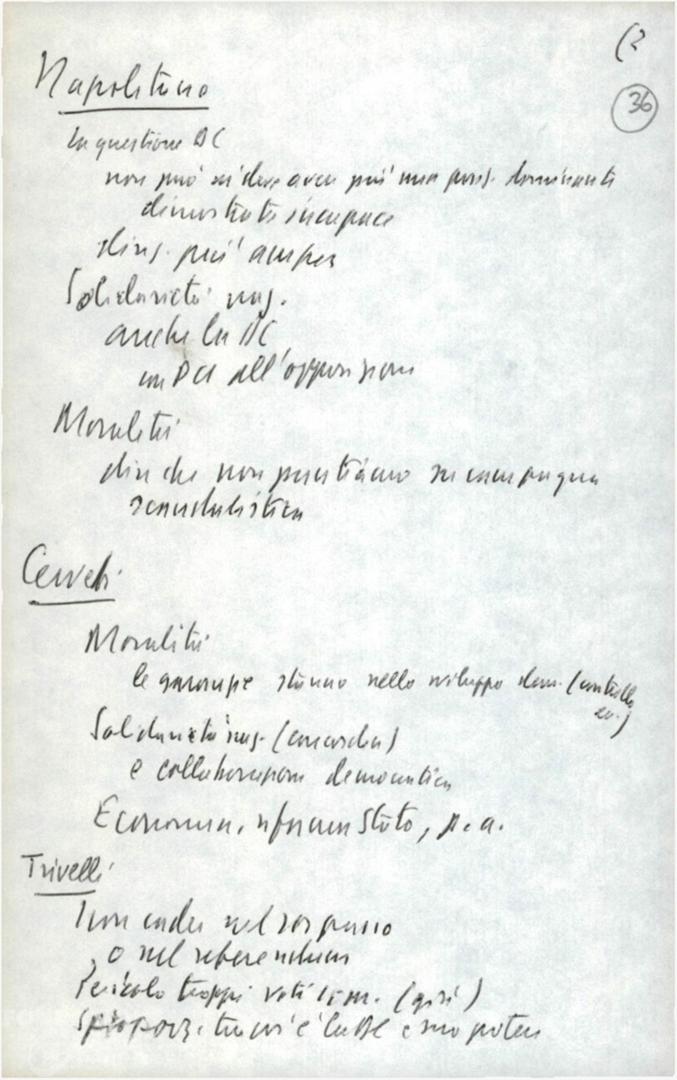 (2
36
Napolitano
La questione DC
non può né deve avere più una pos. dominante
dimostrata incapace
più ampia
Solidarietà naz.
anche la DC
un PCI all'opposizione
Moralità
dire che non puntiamo su campagna
scandalistica
Cervetti
Moralità
le garanzie stanno nello sviluppo dem. (controllo
ecc.)
Solidarietà naz. (concorda)
e collaborazione democratica
Economia, riforma Stato, p.a.
Trivelli
Non cader nel sorpasso
o nel referendum
Pericolo troppi voti com. (già)
è la DC e suo potere